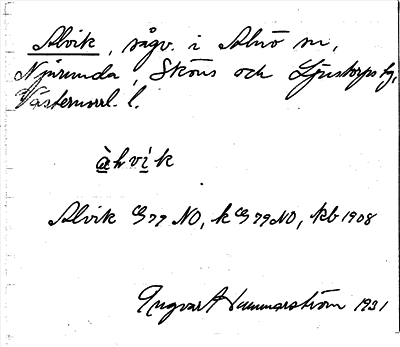 Alvik, sågv. i Alnö sn,
Njurunda, Sköns och Ljustorps tg,
Västernorrl. l.
àhvik
Alvik G 79 NO, k G 79 NO, kb 1908
Ingvar Hammarström 1931